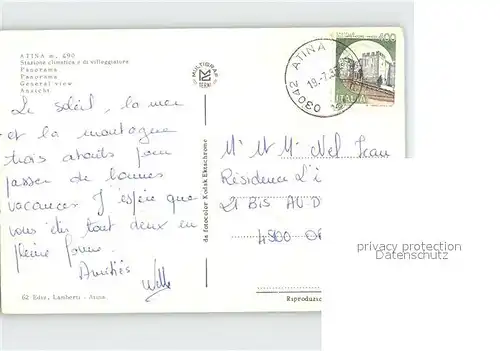 ATINA m. 490
Stazione climatica e di villeggiatura
Panorama
Panorama
General view
Ansicht
MULTIGRAF
TERNI
03042 ATINA
19.-7.
400
ITALIA
Le soleil, la mer
et la montagne
trois atouts pour
passer de bonnes
vacances. J'espère que
vous êtes tout deux en
pleine forme.
Amitiés
da fotocolor Kodak Ektachrome
Mr et Me Nel Jean
Résidence L'
21 BIS AV D
4500
privacy protection
Datenschutz
62 Ediz. Lamberti - Atina
Riproduzio